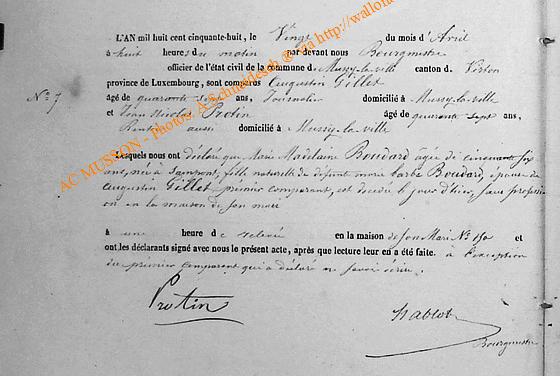 L'AN mil huit cent cinquante-huit, le Vingt du mois d'Avril
à huit heures du matin par devant nous Bourgmestre
officier de l'état civil de la commune de Mussy-la-ville canton de Virton
province de Luxembourg, sont comparus Augustin Gillet
âgé de quarante sept ans, Journalier domicilié à Mussy-la-ville
N° 7
et Jean Nicolas Protin âgé de quarante sept ans,
Rentier aussi domicilié à Mussy-la-ville
Lesquels nous ont déclaré que Marie Madelaine Boudard agée de cinquante six
ans, née à Lamport, fille naturelle de défunte marie barbe Boudard, épouse de
Augustin Gillet premier comparant, est décédée le jour d'hier, sans profession
en la maison de son mari
à une heure de relevée en la maison de son Mari N° 150 et
ont les déclarants signé avec nous le présent acte, après que lecture leur en a été faite. à l'exception
du premier comparant qui a déclaré ne savoir écrire.
Protin
Habtot
Bourgmestre
AC MUSSON - Photos A. Schneidesch @ via http://wallon